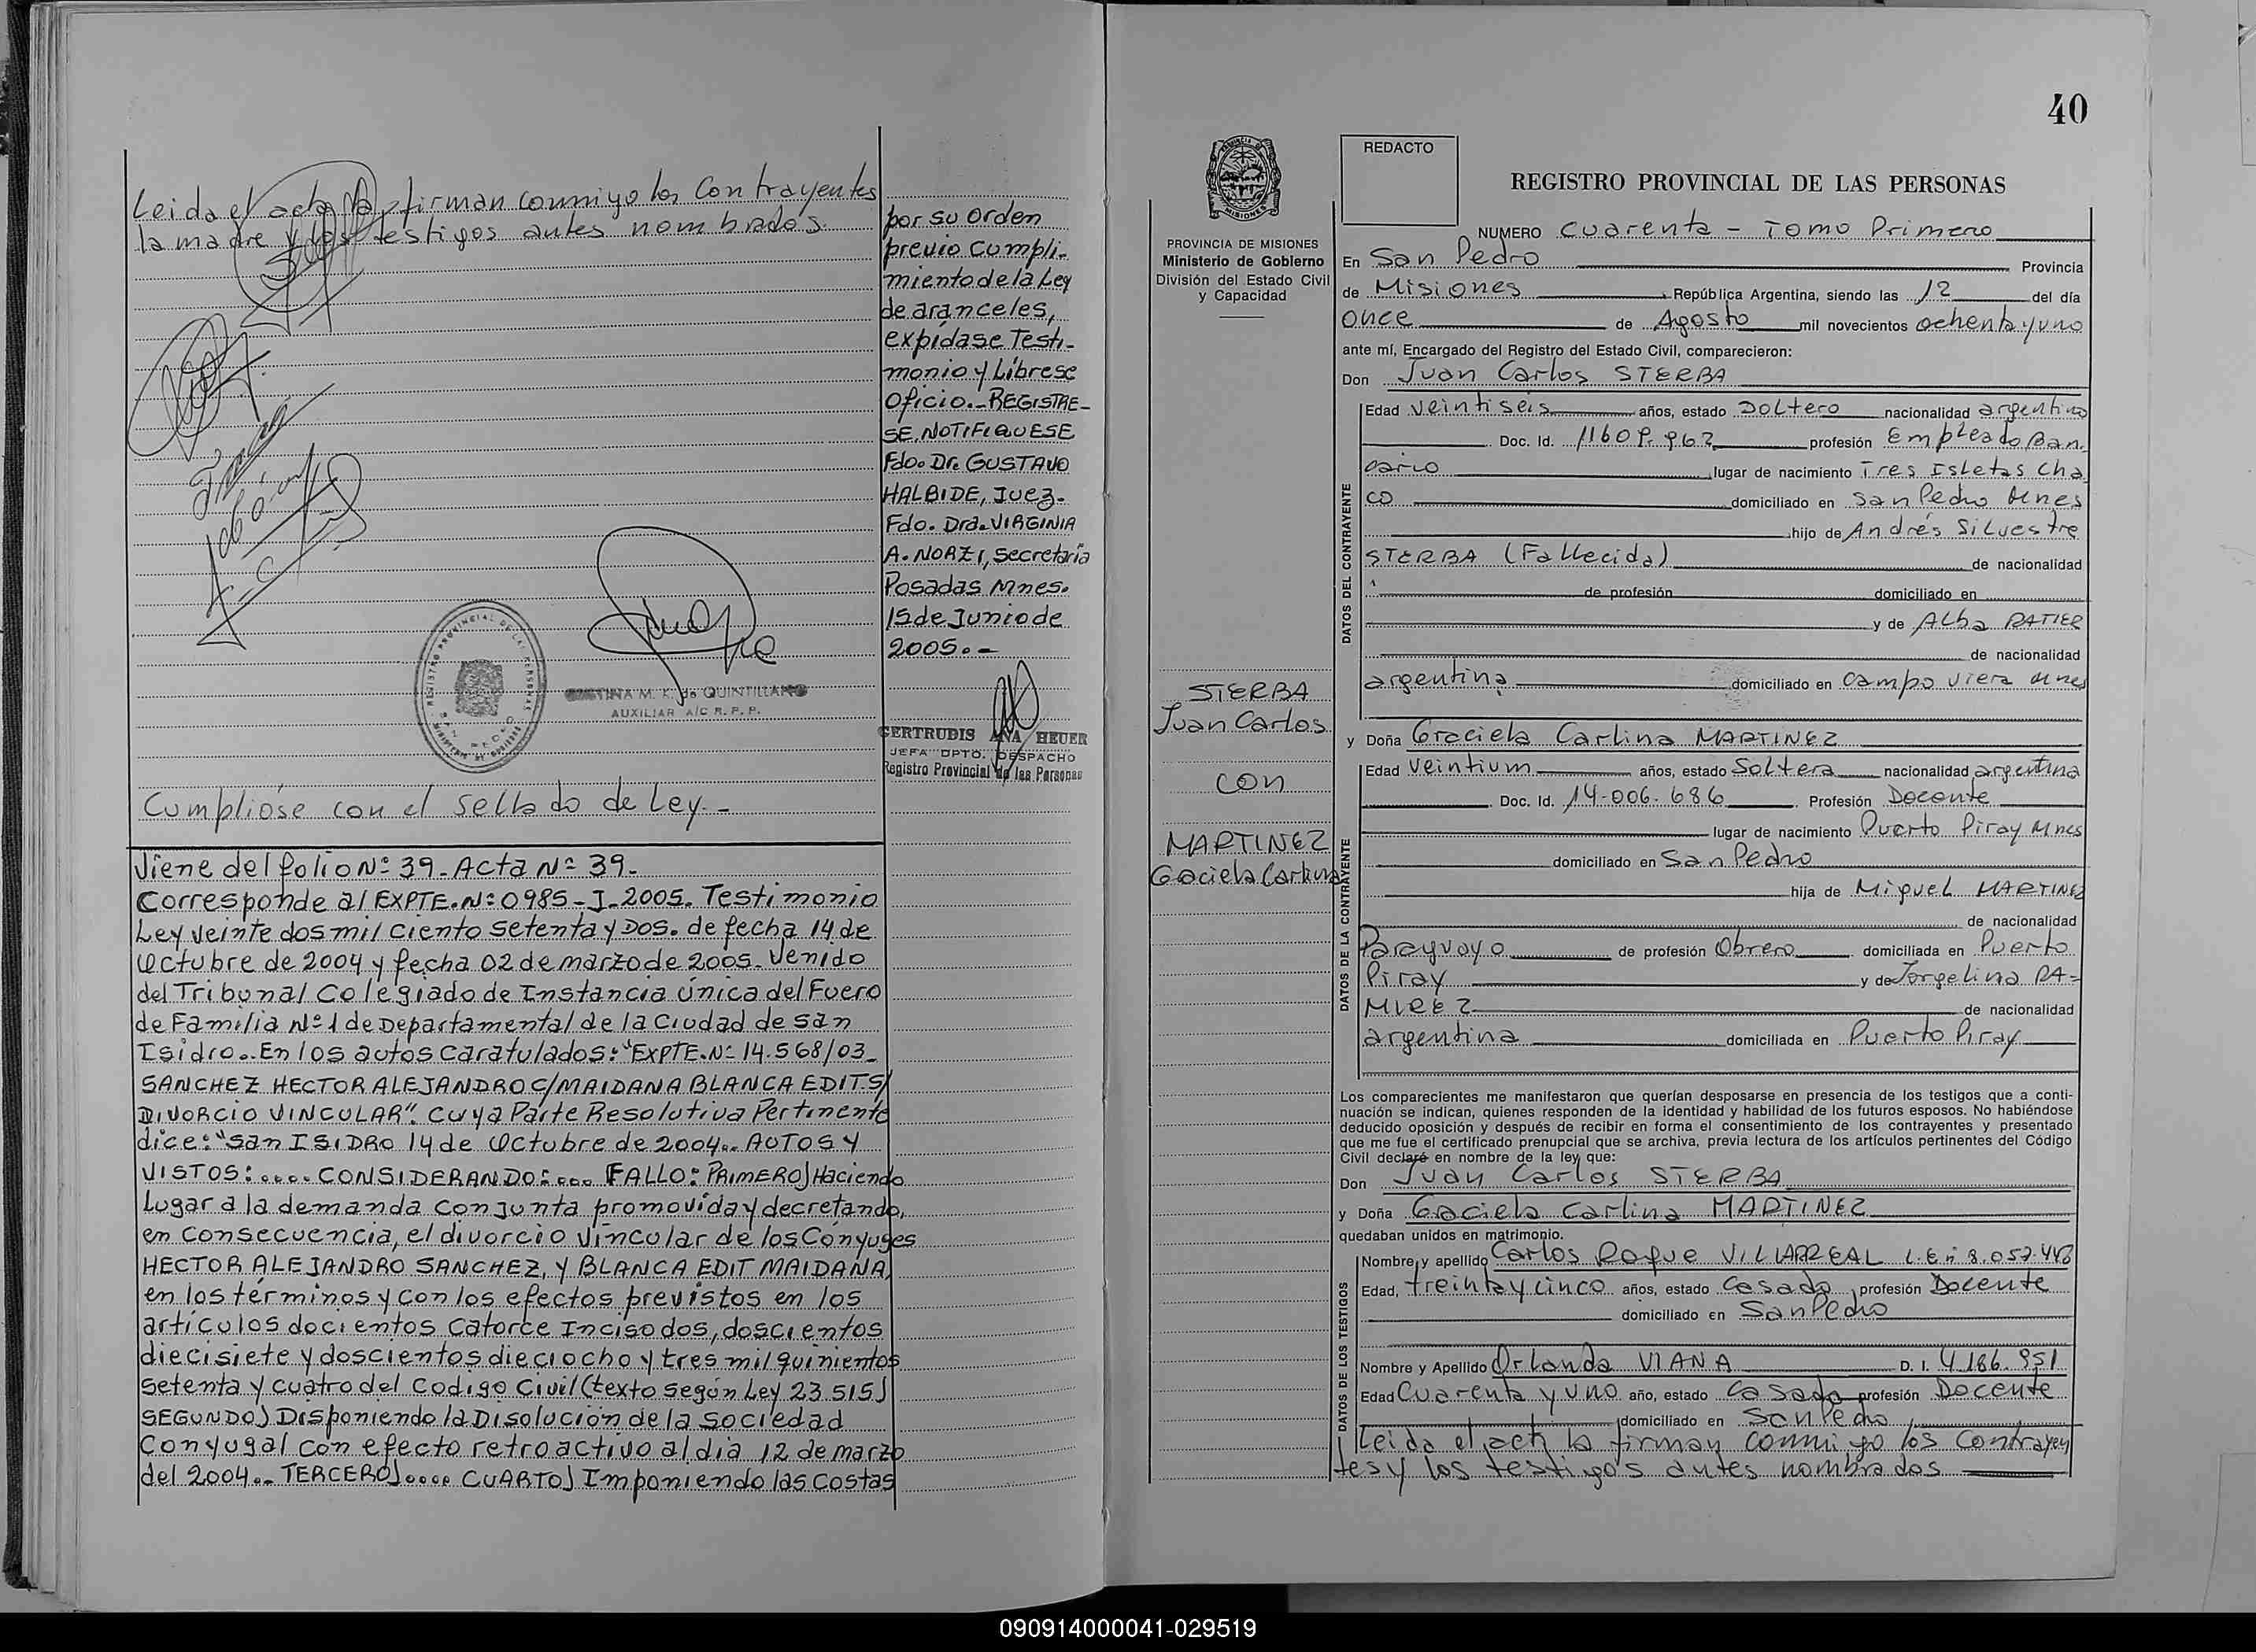 Leida el acta la firman conmigo los Contrayentes
la madre y los testigos antes nombrados.
CRISTINA M. K. de QUINTILLANO
AUXILIAR A/C R. P. P.
Cumplióse con el sellado de Ley.-
Viene del folio Nº 39. Acta Nº 39.
Corresponde al EXPTE. Nº 0985-J-2005. Testimonio
Ley, veinte dos mil ciento setenta y Dos. de fecha 14 de
Octubre de 2004 y fecha 02 de marzo de 2005. Venido
del Tribunal Colegiado de Instancia única del Fuero
de Familia Nº 1 de Departamental de la Ciudad de San
Isidro.. En los autos caratulados: "EXPTE. Nº 14.568/03_
SANCHEZ HECTOR ALEJANDRO C/MAIDANA BLANCA EDIT S/
DIVORCIO VINCULAR". Cuya Parte Resolutiva Pertinente
dice: "San ISIDRO 14 de Octubre de 2004.. AUTOS Y
VISTOS:.... CONSIDERANDO:... FALLO: PRIMERO) Haciendo
Lugar a la demanda conjunta promovida y decretando,
en consecuencia, el divorcio vincular de los Cónyuges
HECTOR ALEJANDRO SANCHEZ, Y BLANCA EDIT MAIDANA,
en los términos y con los efectos previstos en los
artículos docientos catorce Inciso dos, doscientos
diecisiete y doscientos dieciocho y tres mil quinientos
setenta y cuatro del Codigo Civil (texto según Ley 23.515)
SEGUNDO) Disponiendo la Disolución de la sociedad
Conyugal con efecto retroactivo al dia 12 de marzo
del 2004.. TERCERO).... CUARTO) Imponiendo las costas
por su orden
previo cumpli-
miento de la Ley
de aranceles,
expídase Testi-
monio y Líbrese
Oficio.- REGISTRE-
SE, NOTIFIQUESE
Fdo. Dr. GUSTAVO
HALBIDE, Juez-
Fdo. Dra. VIRGINIA
A. NORZI, Secretaria
Posadas Mnes.
15 de Junio de
2005.-
GERTRUDIS ANA HEUER
JEFA DPTO. DESPACHO
Registro Provincial de las Personas
40
PROVINCIA DE MISIONES
Ministerio de Gobierno
División del Estado Civil
y Capacidad
STERBA
Juan Carlos
con
MARTINEZ
Graciela Carlina
REDACTO
REGISTRO PROVINCIAL DE LAS PERSONAS
NUMERO Cuarenta - Tomo Primero
En San Pedro Provincia
de Misiones, República Argentina, siendo las 12 del día
once de Agosto mil novecientos ochenta y uno
ante mí, Encargado del Registro del Estado Civil, comparecieron:
Don Juan Carlos STERBA
DATOS DEL CONTRAYENTE
Edad veintiseis años, estado soltero nacionalidad argentino
Doc. Id. profesión Empleado Ban
cario lugar de nacimiento Tres Isletas Cha
co domiciliado en San Pedro Mnes
hijo de Andrés Silvestre
STERBA (Fallecido) de nacionalidad
de profesión domiciliado en
y de Alba RATIER
de nacionalidad
argentina domiciliado en Campo Viera Mnes
y Doña Graciela Carlina MARTINEZ
DATOS DE LA CONTRAYENTE
Edad veintium años, estado Soltera nacionalidad argentina
Doc. Id. 14.006.686 Profesión Docente
lugar de nacimiento Puerto Piray Mnes
domiciliado en San Pedro
hija de Miguel MARTINEZ
de nacionalidad
Paraguayo de profesión Obrero domiciliada en Puerto
Piray y de Jorgelina RA=
MIREZ de nacionalidad
argentina domiciliada en Puerto Piray
Los comparecientes me manifestaron que querían desposarse en presencia de los testigos que a conti-
nuación se indican, quienes responden de la identidad y habilidad de los futuros esposos. No habiéndose
deducido oposición y después de recibir en forma el consentimiento de los contrayentes y presentado
que me fue el certificado prenupcial que se archiva, previa lectura de los artículos pertinentes del Código
Civil declaré en nombre de la ley que:
Don Juan Carlos STERBA
y Doña Graciela Carlina MARTINEZ
quedaban unidos en matrimonio.
DATOS DE LOS TESTIGOS
Nombre y apellido Carlos Roque VILLARREAL L.E. nº 8.057.448
Edad, treinta y cinco años, estado Casado profesión Docente
domiciliado en San Pedro
Nombre y Apellido Orlando VIANA D. I. 4.186.951
Edad Cuarenta y uno año, estado Casado profesión Docente
domiciliado en San Pedro
Leida el acta la firman conmigo los Contrayen
tes y los testigos antes nombrados
090914000041-029519